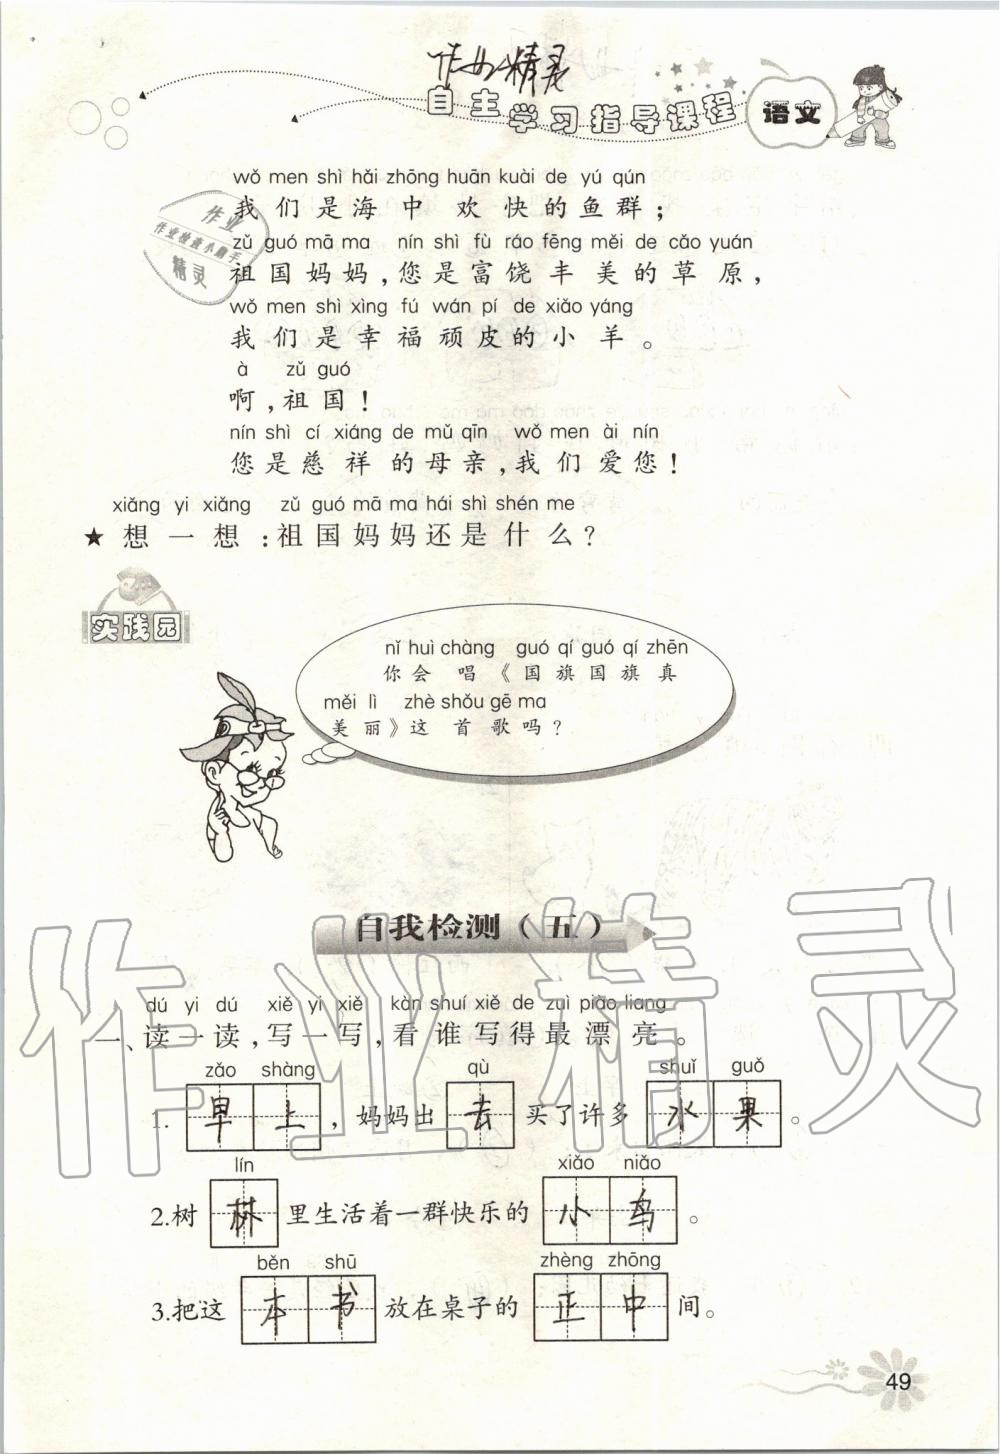 作业精灵
自主学习指导课程 语文
wǒ men shì hǎi zhōng huān kuài de yú qún
我们是海中欢快的鱼群；
zǔ guó mā ma nín shì fù ráo fēng měi de cǎo yuán
祖国妈妈，您是富饶丰美的草原，
wǒ men shì xìng fú wán pí de xiǎo yáng
我们是幸福顽皮的小羊。
à zǔ guó
啊，祖国！
nín shì cí xiáng de mǔ qīn wǒ men ài nín
您是慈祥的母亲，我们爱您！
xiǎng yi xiǎng zǔ guó mā ma hái shì shén me
★ 想一想：祖国妈妈还是什么？
作业
作业检查小助手
精灵
实践园
nǐ huì chàng guó qí guó qí zhēn
你会唱《国旗国旗真
měi lì zhè shǒu gē ma
美丽》这首歌吗？
自我检测（五）
dú yi dú xiě yi xiě kàn shuí xiě de zuì piāo liang
一、读一读，写一写，看谁写得最漂亮。
zǎo shàng qù shuǐ guǒ
1. 早上，妈妈出去买了许多水果。
lín xiǎo niǎo
2.树林里生活着一群快乐的小鸟。
běn shū zhèng zhōng
3.把这本书放在桌子的正中间。
作业精灵
49